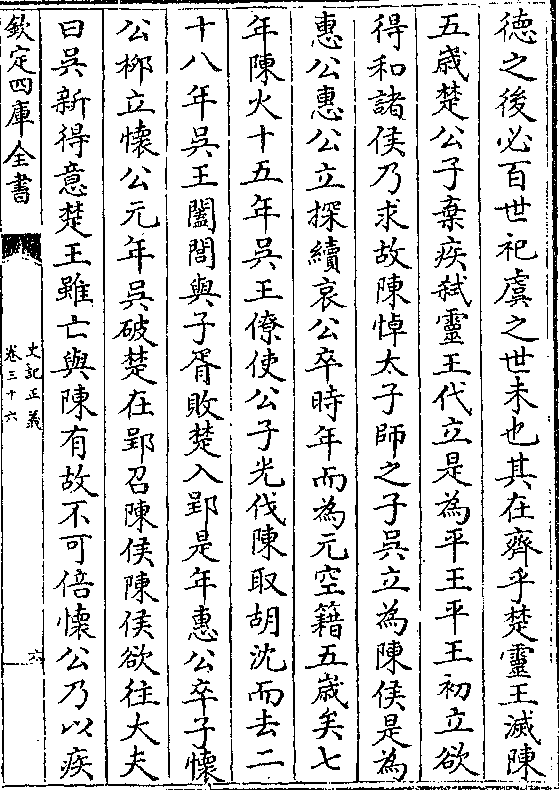 德之後必百世祀虞之世未也其在齊乎楚靈王滅陳
五歳楚公子棄疾弑靈王代立是為平王平王初立欲
得和諸侯乃求故陳悼太子師之子吳立為陳侯是為
惠公惠公立探續哀公卒時年而為元空籍五歳矣七
年陳火十五年吳王僚使公子光伐陳取胡沈而去二
十八年吳王闔閭與子胥敗楚入郢是年惠公卒子懷
公栁立懷公元年吳破楚在郢召陳侯陳侯欲往大夫
曰吳新得意楚王雖亡與陳有故不可倍懷公乃以疾
欽定四庫全書
史記正義
卷三十六
六